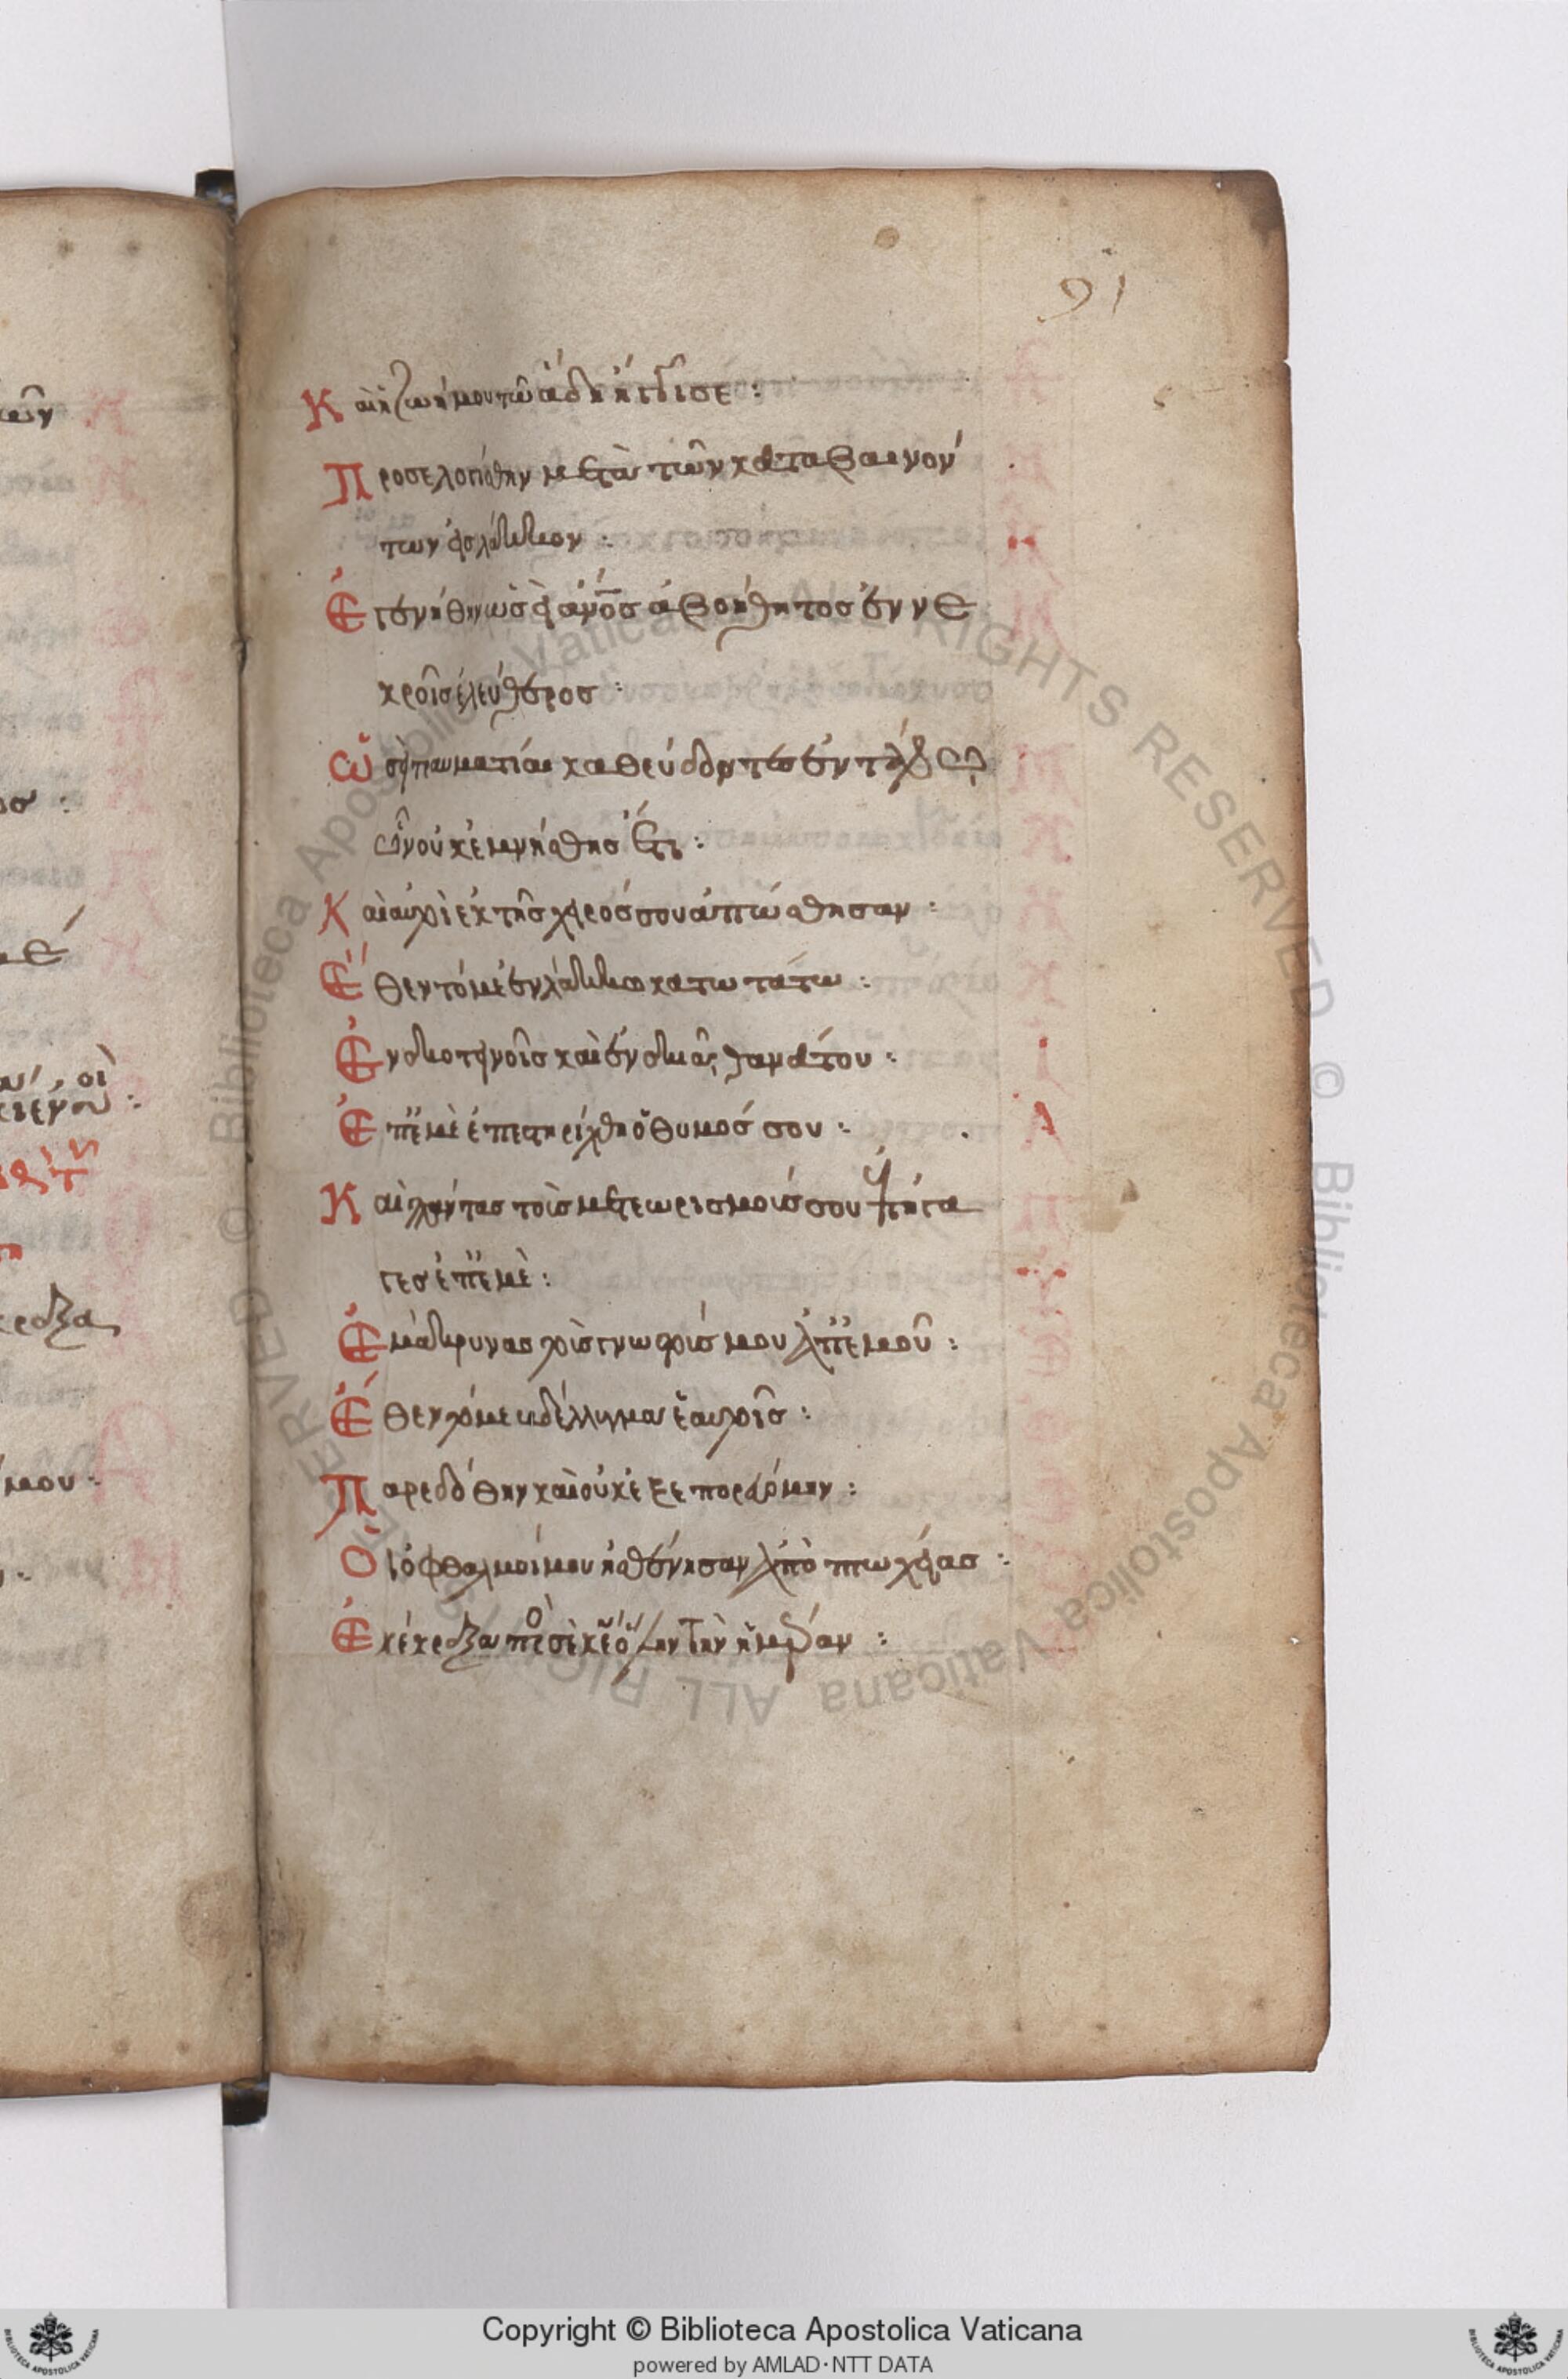 91
Καὶ ἡ ζωή μου τῶ ἅδη ἤγγισε :
Προσελογίσθην μετὰ τῶν καταβαινόν
των εἰς λάκκον :
Ἐγενήθην ὡσεὶ ἄνος ἀβοήθητος ἐν νε
κροῖς ἐλεύθερος :
Ὡσεὶ τραυματίαι καθεύδοντες ἐν τάφω
ὧν οὐκ ἐμνήσθης ἔτι :
Καὶ αὐτοὶ ἐκ τῆς χειρός σου ἀπώσθησαν :
Ἔθεντό με ἐν λάκκω κατωτάτω :
Ἐν σκοτεινοῖς καὶ ἐν σκιᾶ θανάτου :
Ἐπ' ἐμὲ ἐπεστηρίχθη ὁ θυμός σου :
Καὶ πάντας τοὺς μετεωρισμούς σου ἐπήγα
γες ἐπ' ἐμὲ :
Ἐμάκρυνας τοὺς γνωστούς μου ἀπ' ἐμοῦ :
Ἔθεντό με βδέλυγμα ἑαυτοῖς :
Παρεδόθην καὶ οὐκ ἐξεπορευόμην :
Οἱ ὀφθαλμοί μου ἠσθένησαν ἀπὸ πτωχείας :
Ἐκέκραξα πρὸς σὲ κε ὅλην τὴν ἡμέραν :
Copyright © Biblioteca Apostolica Vaticana
powered by AMLAD·NTT DATA